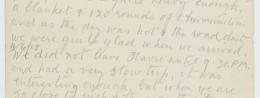 nearly enough,
a blanket & 120 rounds of ammunition
and as the day was hot & the road dusty
we were quite glad when we arrived.
We did not leave Havre until 9.30 P.M.
and had a very slow trip, it was
interesting enough, but when we are
so close to